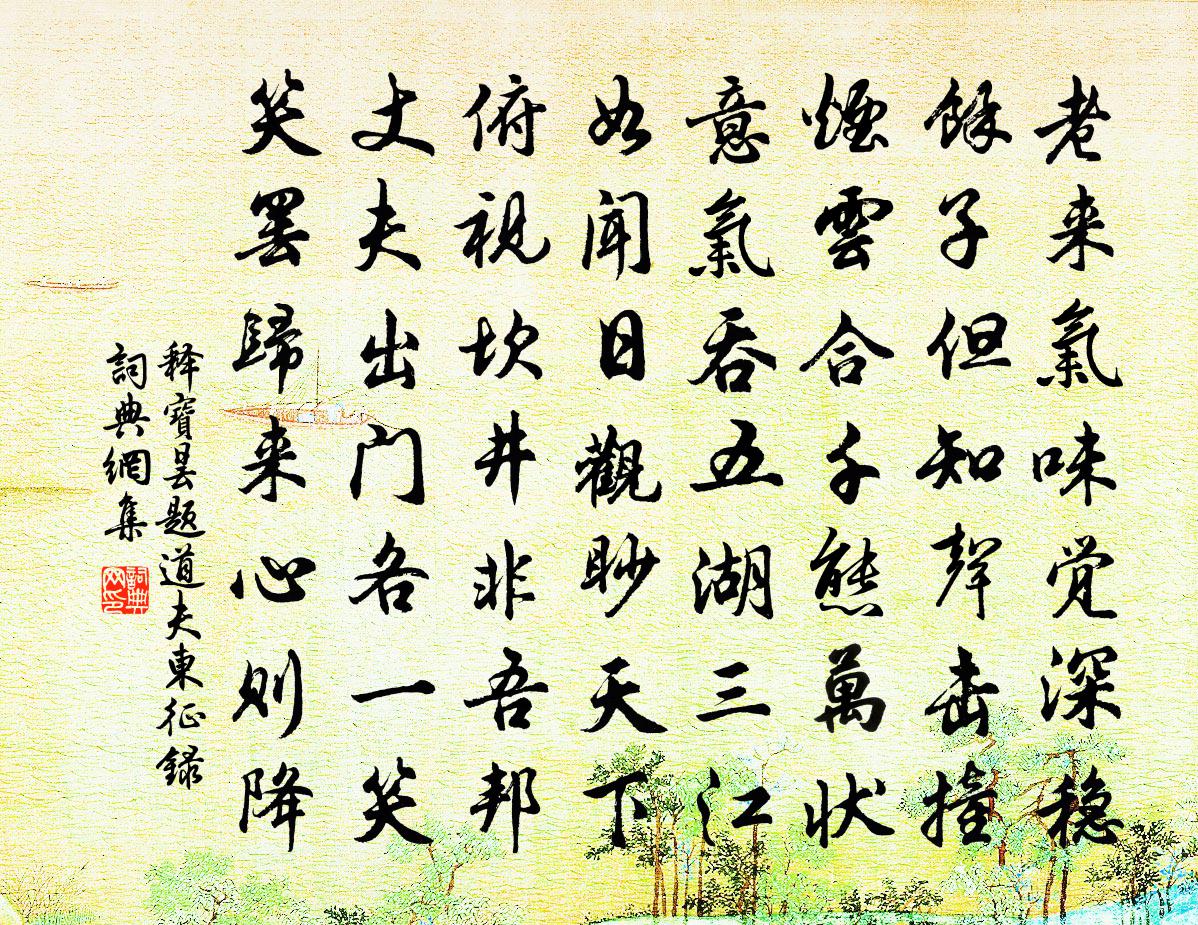 老来氣味觉深穏
餘子但知聲击撞
煙雲合千態萬状
意氣吞五湖三江
如聞日觀眇天下
俯視坎井非吾邦
丈夫出门各一笑
笑罢歸来心则降
释寶昙题道夫東征録
詞典網集
詞典网印